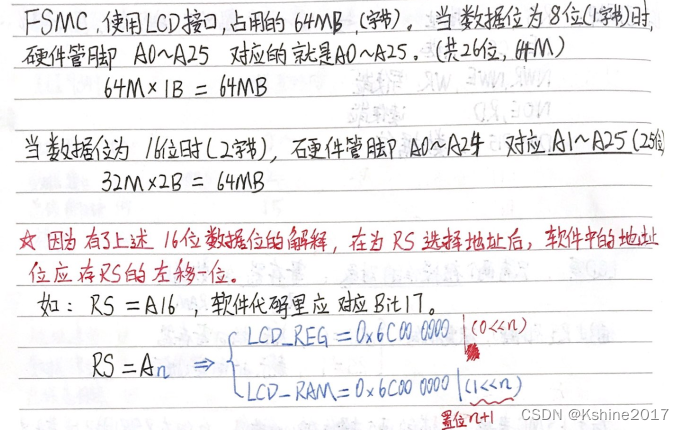 FSMC,使用LCD接口,占用的64MB,(字节)。当数据位为8位(1字节)时,
硬件管脚 A0~A25 对应的就是A0~A25。(共26位,64M)
64M×1B = 64MB
当数据位为 16位时(2字节),硬件管脚 A0~A24 对应 A1~A25 (25位)
32M×2B = 64MB
☆ 因为有了上述 16位数据位的解释,在为 RS 选择地址后,软件中的地址
位应在RS的左移一位。
如: RS = A16 ,软件代码里应对应Bit17。
RS = An ⇒ { LCD_REG = 0x6C00 0000 | (0<<n)
LCD_RAM = 0x6C00 0000 | (1<<n)
置位n+1
CSDN @Kshine2017